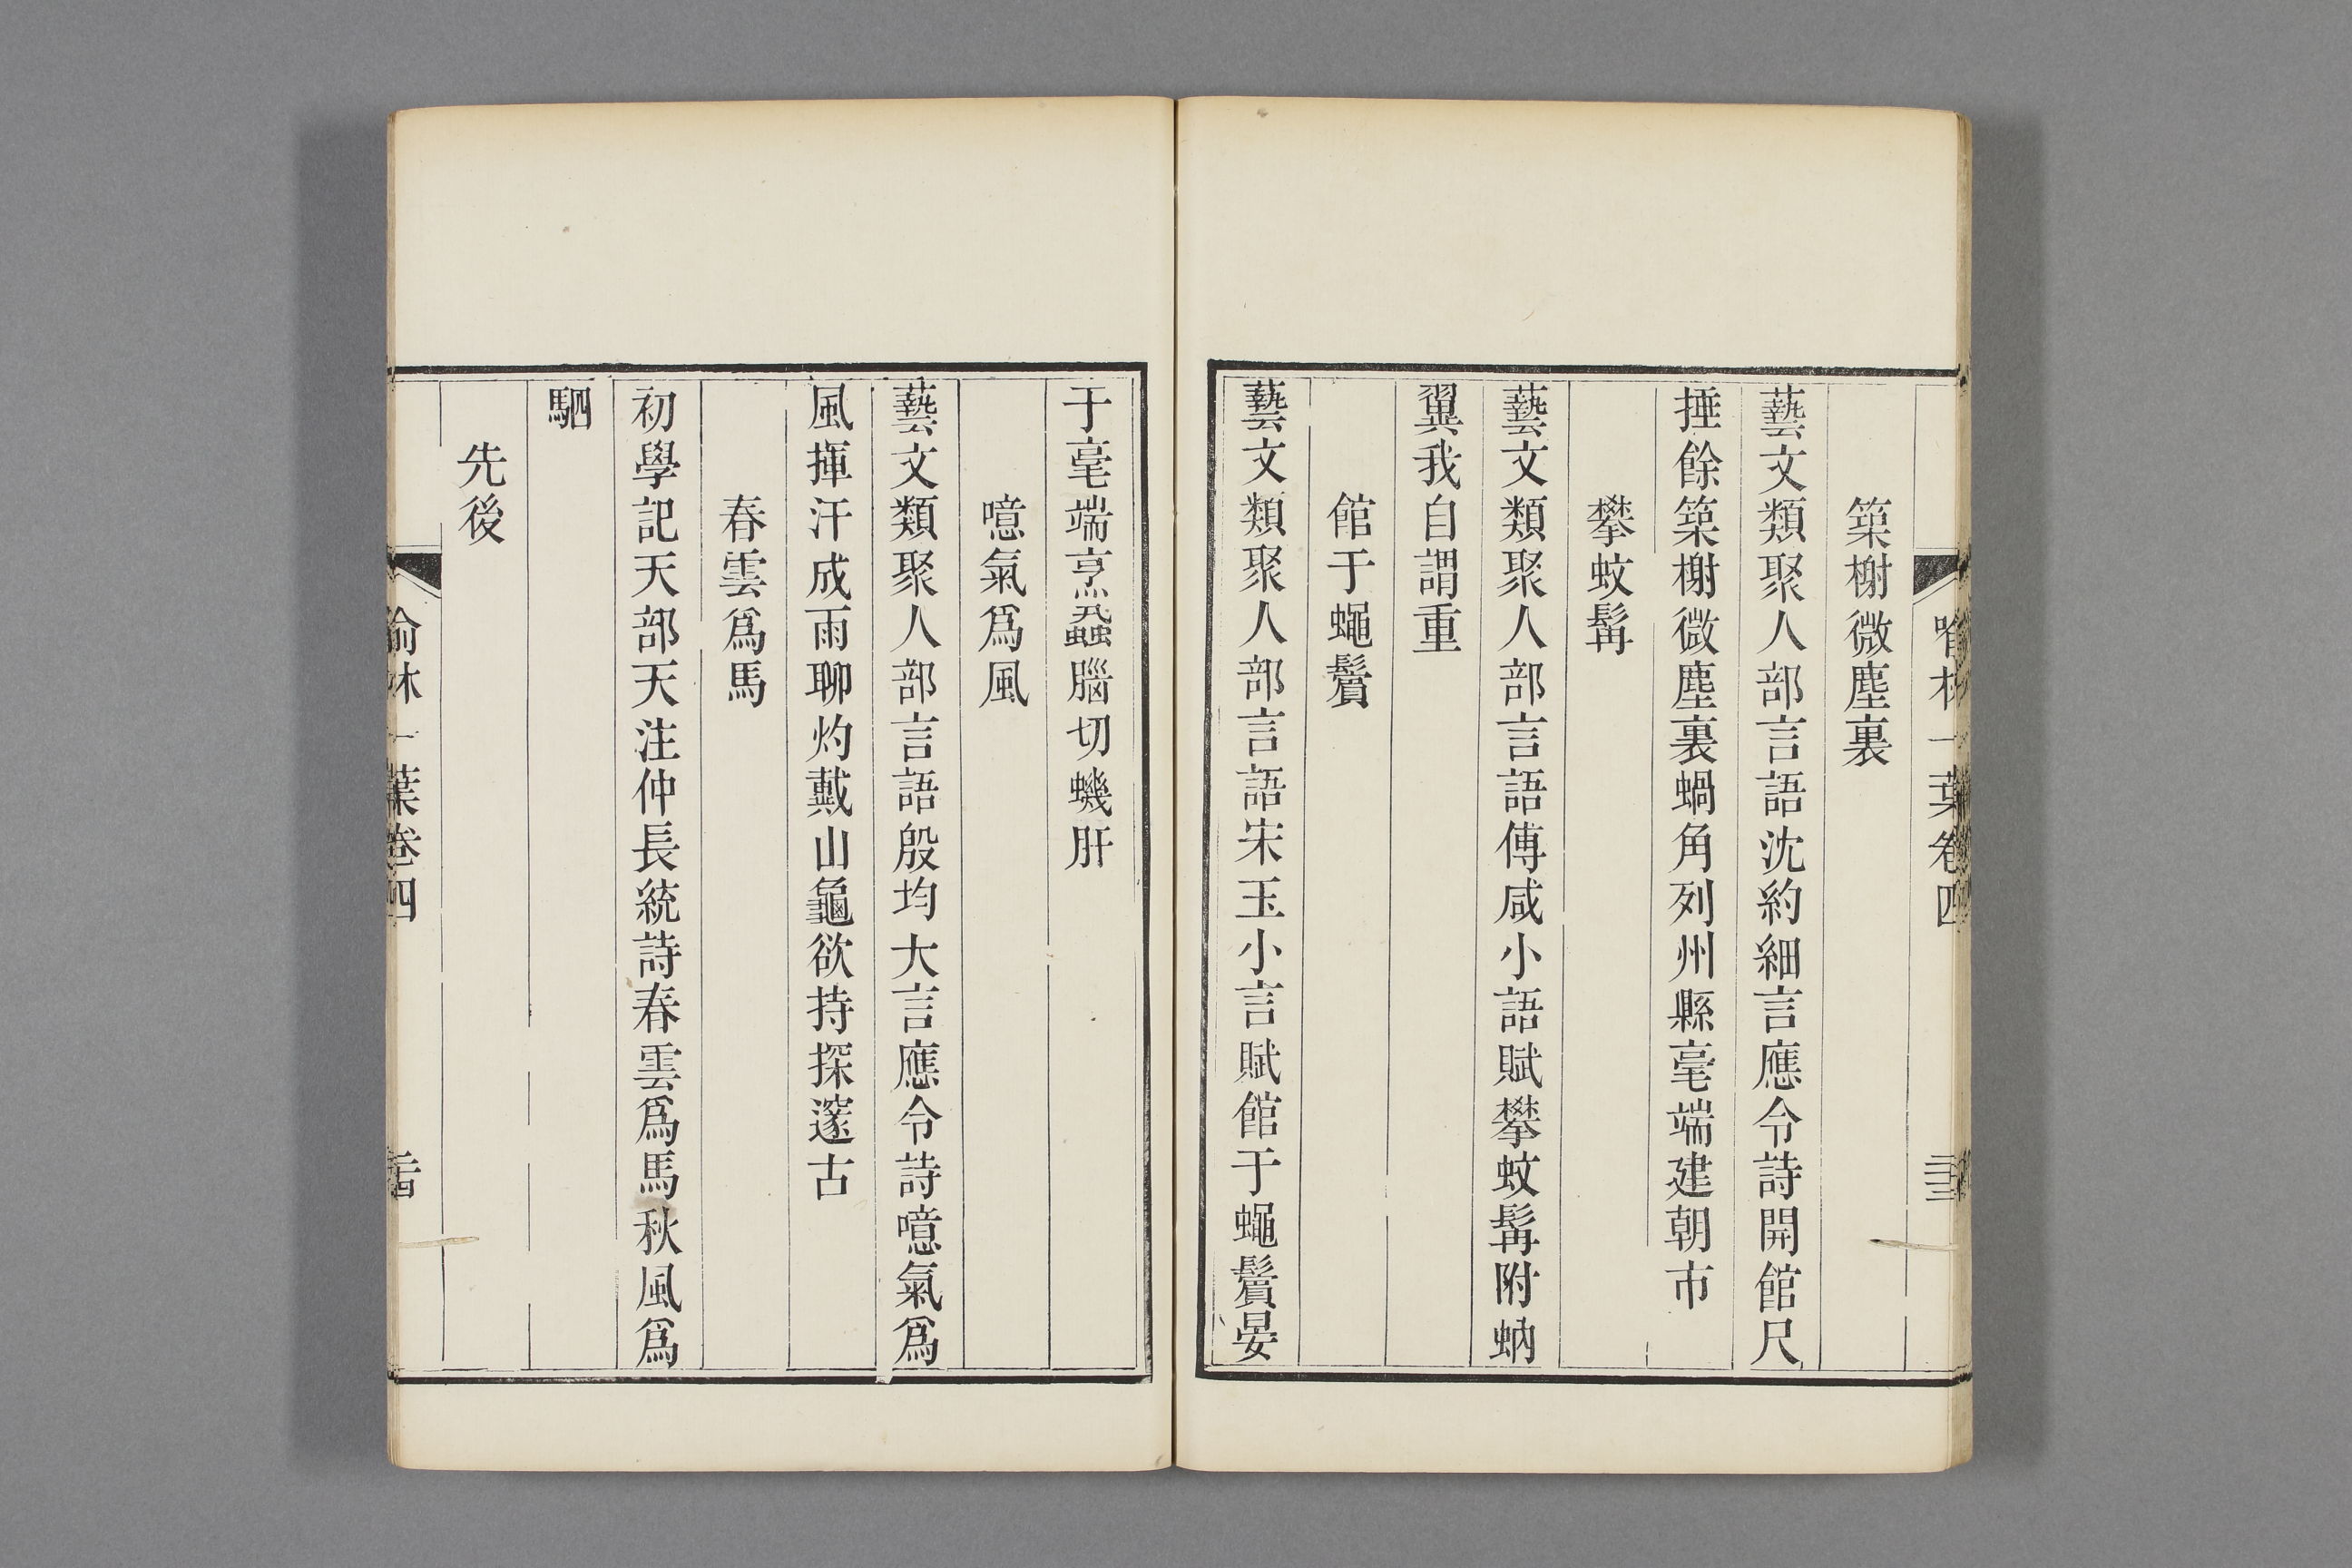 築榭微塵裏
藝文類聚人部言語沈約細言應令詩開館尺
捶餘築榭微塵裏蝸角列州縣毫端建朝市
攀蚊髯
藝文類聚人部言語傅咸小語賦攀蚊髯附蚋
翼我自謂重
館于蠅鬢
藝文類聚人部言語宋玉小言賦館于蠅鬢宴
于毫端烹蝨腦切蟣肝
噫氣爲風
藝文類聚人部言語殷均大言應令詩噫氣爲
風揮汗成雨聊灼戴山龜欲持探邃古
春雲爲馬
初學記天部天注仲長統詩春雲爲馬秋風爲
駟
先後
喻林一葉卷四